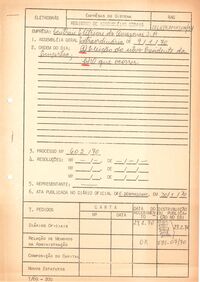 ELETROBRÁS
EMPRÊSAS DO SISTEMA
RAG
REGISTRO DE ASSEMBLÉIAS GERAIS
EMPRÊSA: Centrais Elétricas do Amazonas S.A
1. ASSEMBLÉIA GERAL Extraordinária DE 9/1/70
2. ORDEM DO DIA: Eleição do novo Presidente da
Emprêsa; que ocorrer
3. PROCESSO Nº 602/70
4. RESOLUÇÕES: Nº DE / /
Nº DE / /
Nº DE / /
5. REPRESENTANTE:
6. ATA PUBLICADA NO DIÁRIO OFICIAL DO E. DE 30/1/70
7. PEDIDOS
CARTA
Nº
DATA
DATA DO RECEBIMENTO
DISTRIBUIÇÃO OU PUBLICAÇÃO NO BEI
DIÁRIOS OFICIAIS
RELAÇÃO DE MEMBROS DA ADMINISTRAÇÃO
OK
COMPOSIÇÃO DO CAPITAL
NOVOS ESTATUTOS